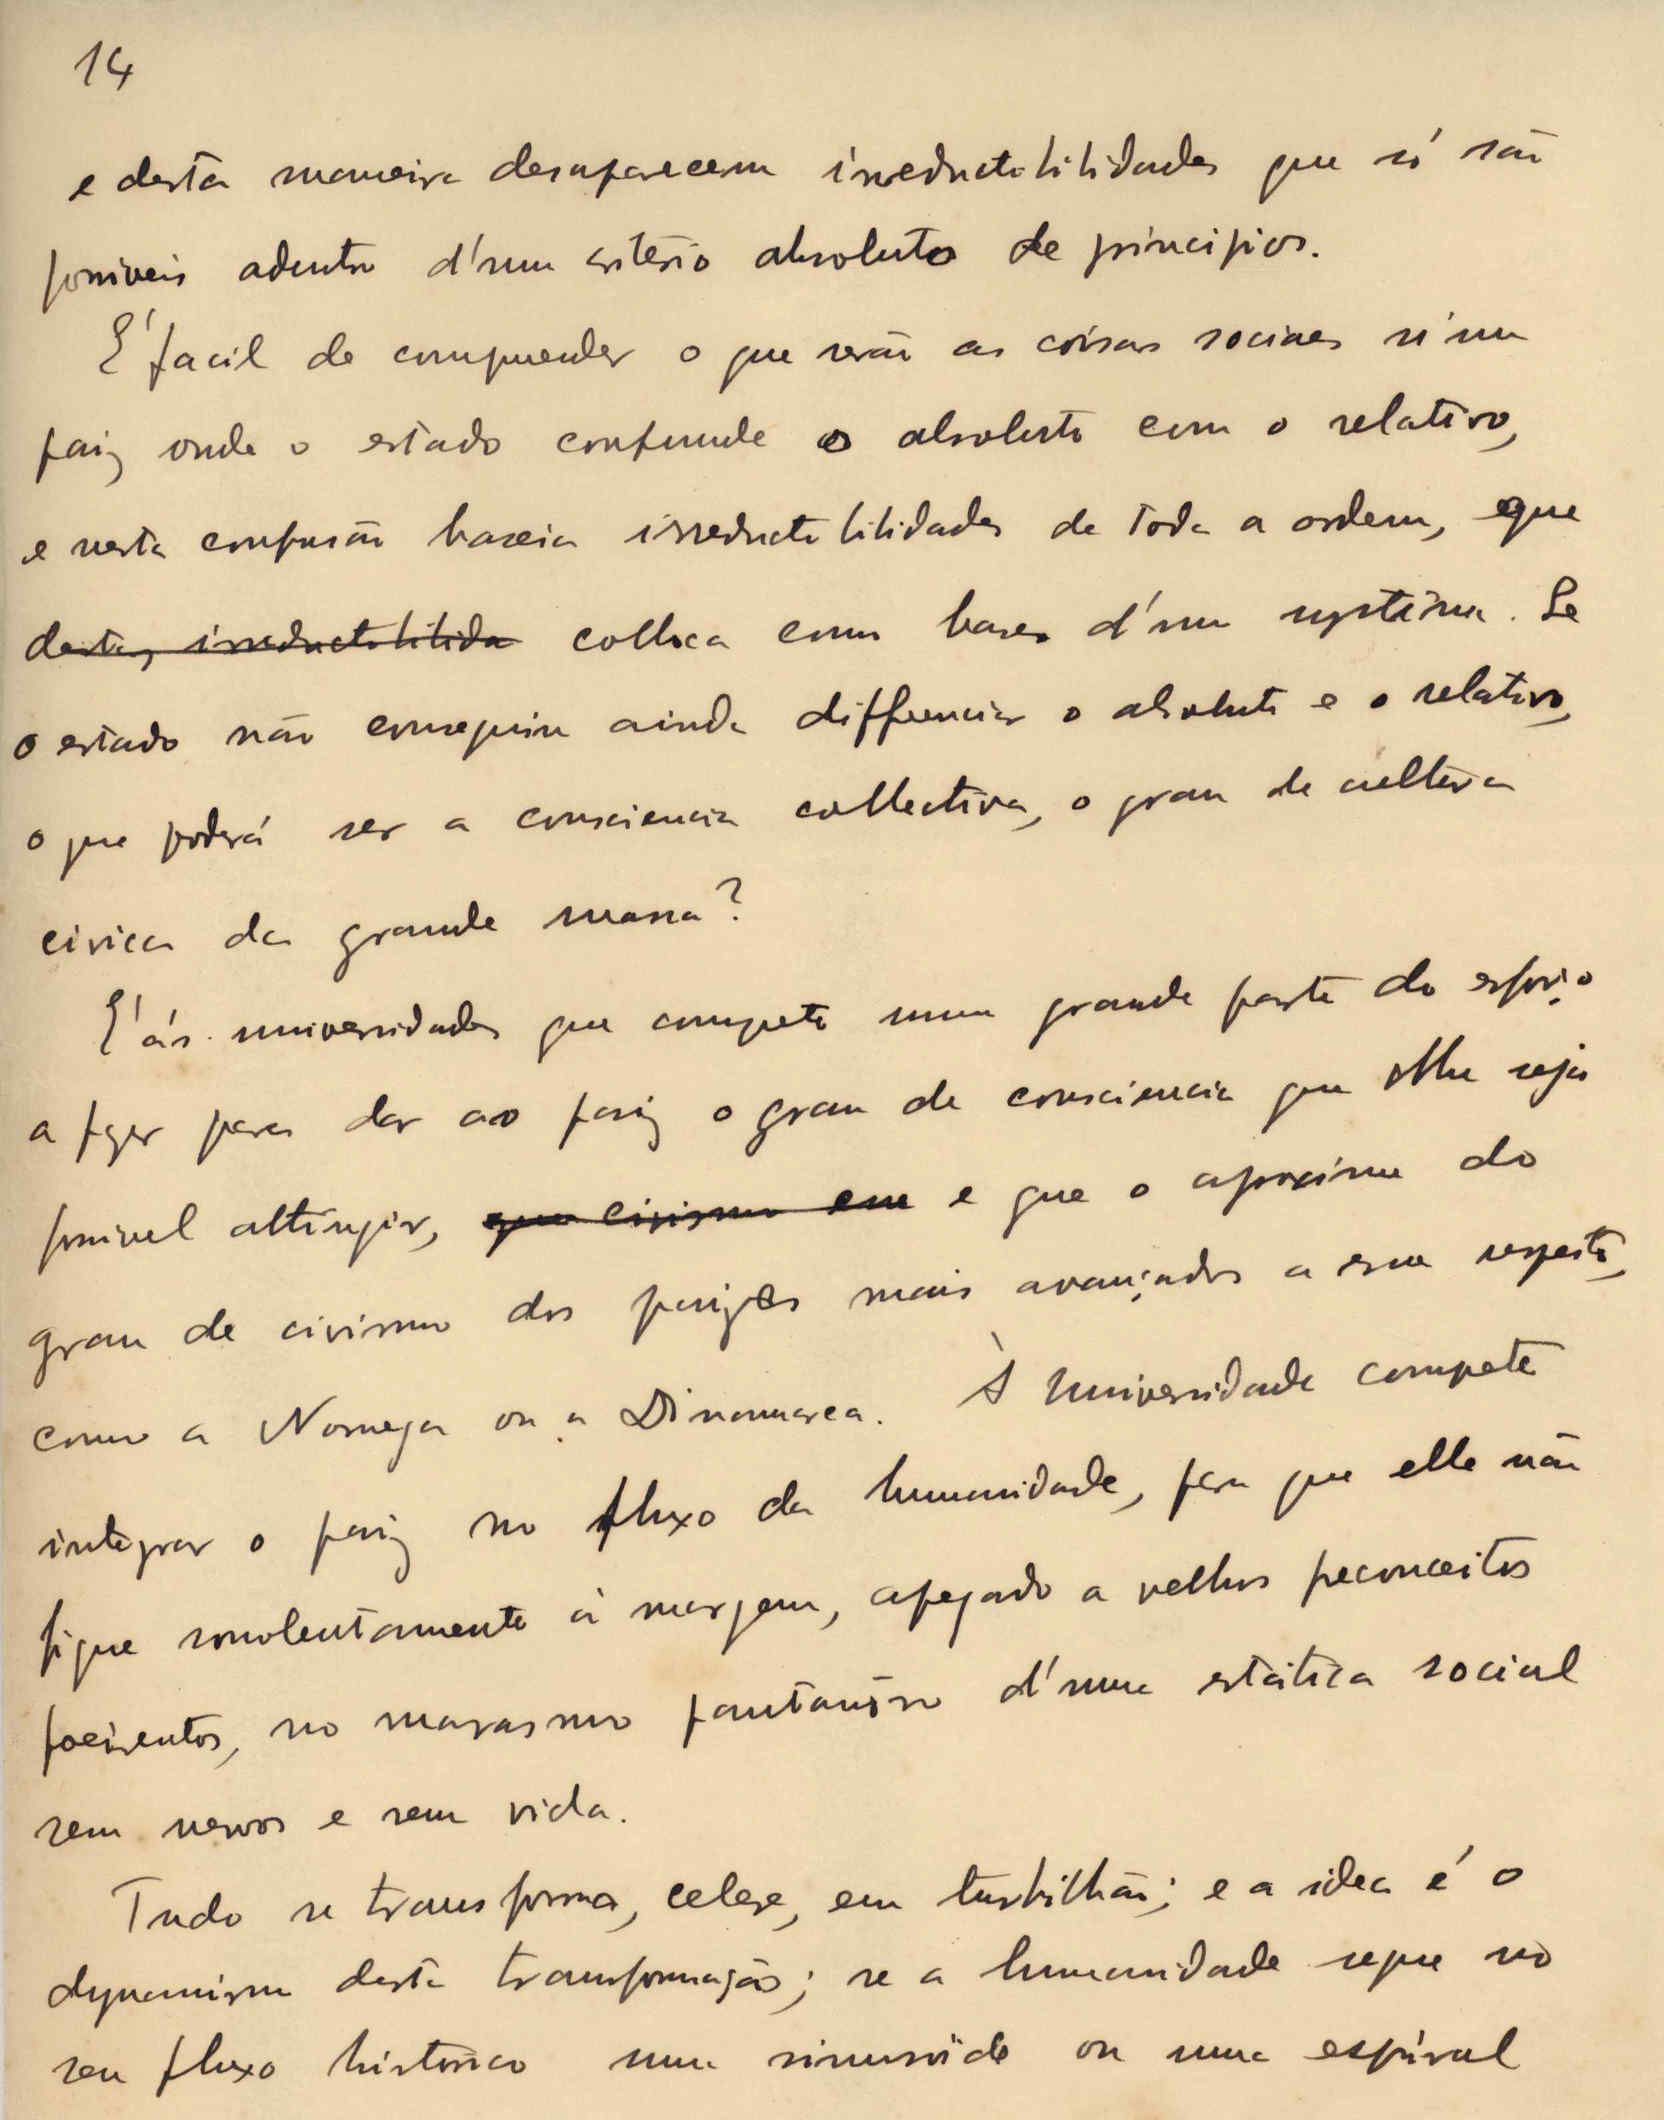 14
e desta maneira desaparecem irreductibilidades que só são
possiveis adentro d'um critério absoluto de principios.
É facil de comprender o que serão as coisas sociaes n'um
paiz onde o estado confunde o absoluto com o relativo,
e nesta confusão baseia irreductibilidades de toda a ordem, e que
destas irreductibilida colloca como bases d'um systêma. Se
o estado não conseguiu ainda differenciar o absoluto e o relativo,
o que poderá ser a consciencia collectiva, o grau de cultura
civica da grande massa?
É ás universidades que compete uma grande parte do esforço
a fazer para dar ao paiz o grau de consciencia que lhe seja
possivel attingir, que civismo em e que o aproxime do
grau de civismo dos paizes mais avançados a esse respeito,
como a Noruega ou a Dinamarca. À Universidade compete
integrar o paiz no fluxo da humanidade, para que elle não
fique sonolentamente à margem, apegado a velhos preconceitos
poeirentos, no marasmo pantanôso d'uma estática social
sem nervos e sem vida.
Tudo se transforma, celere, em turbilhão; e a idea é o
dynamismo desta transformação; se a humanidade segue no
seu fluxo histórico uma sinusóide ou uma espiral